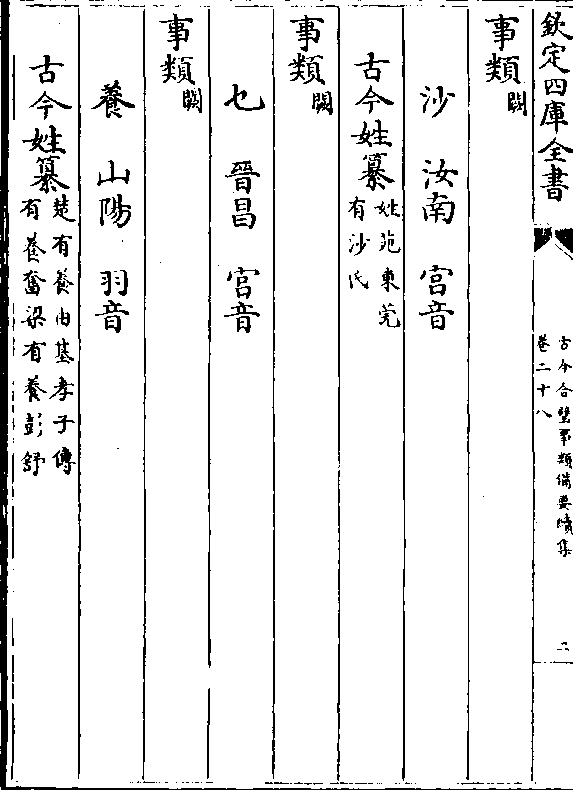 欽定四庫全書
古今合璧事類備要續集
卷二十八
二
事類闕
沙 汝南 宮音
古今姓纂姓苑東莞
有沙氏
事類闕
乜 晉昌 宮音
事類闕
養 山陽 羽音
古今姓纂楚有養由基孝子傳
有養奮梁有養彭舒